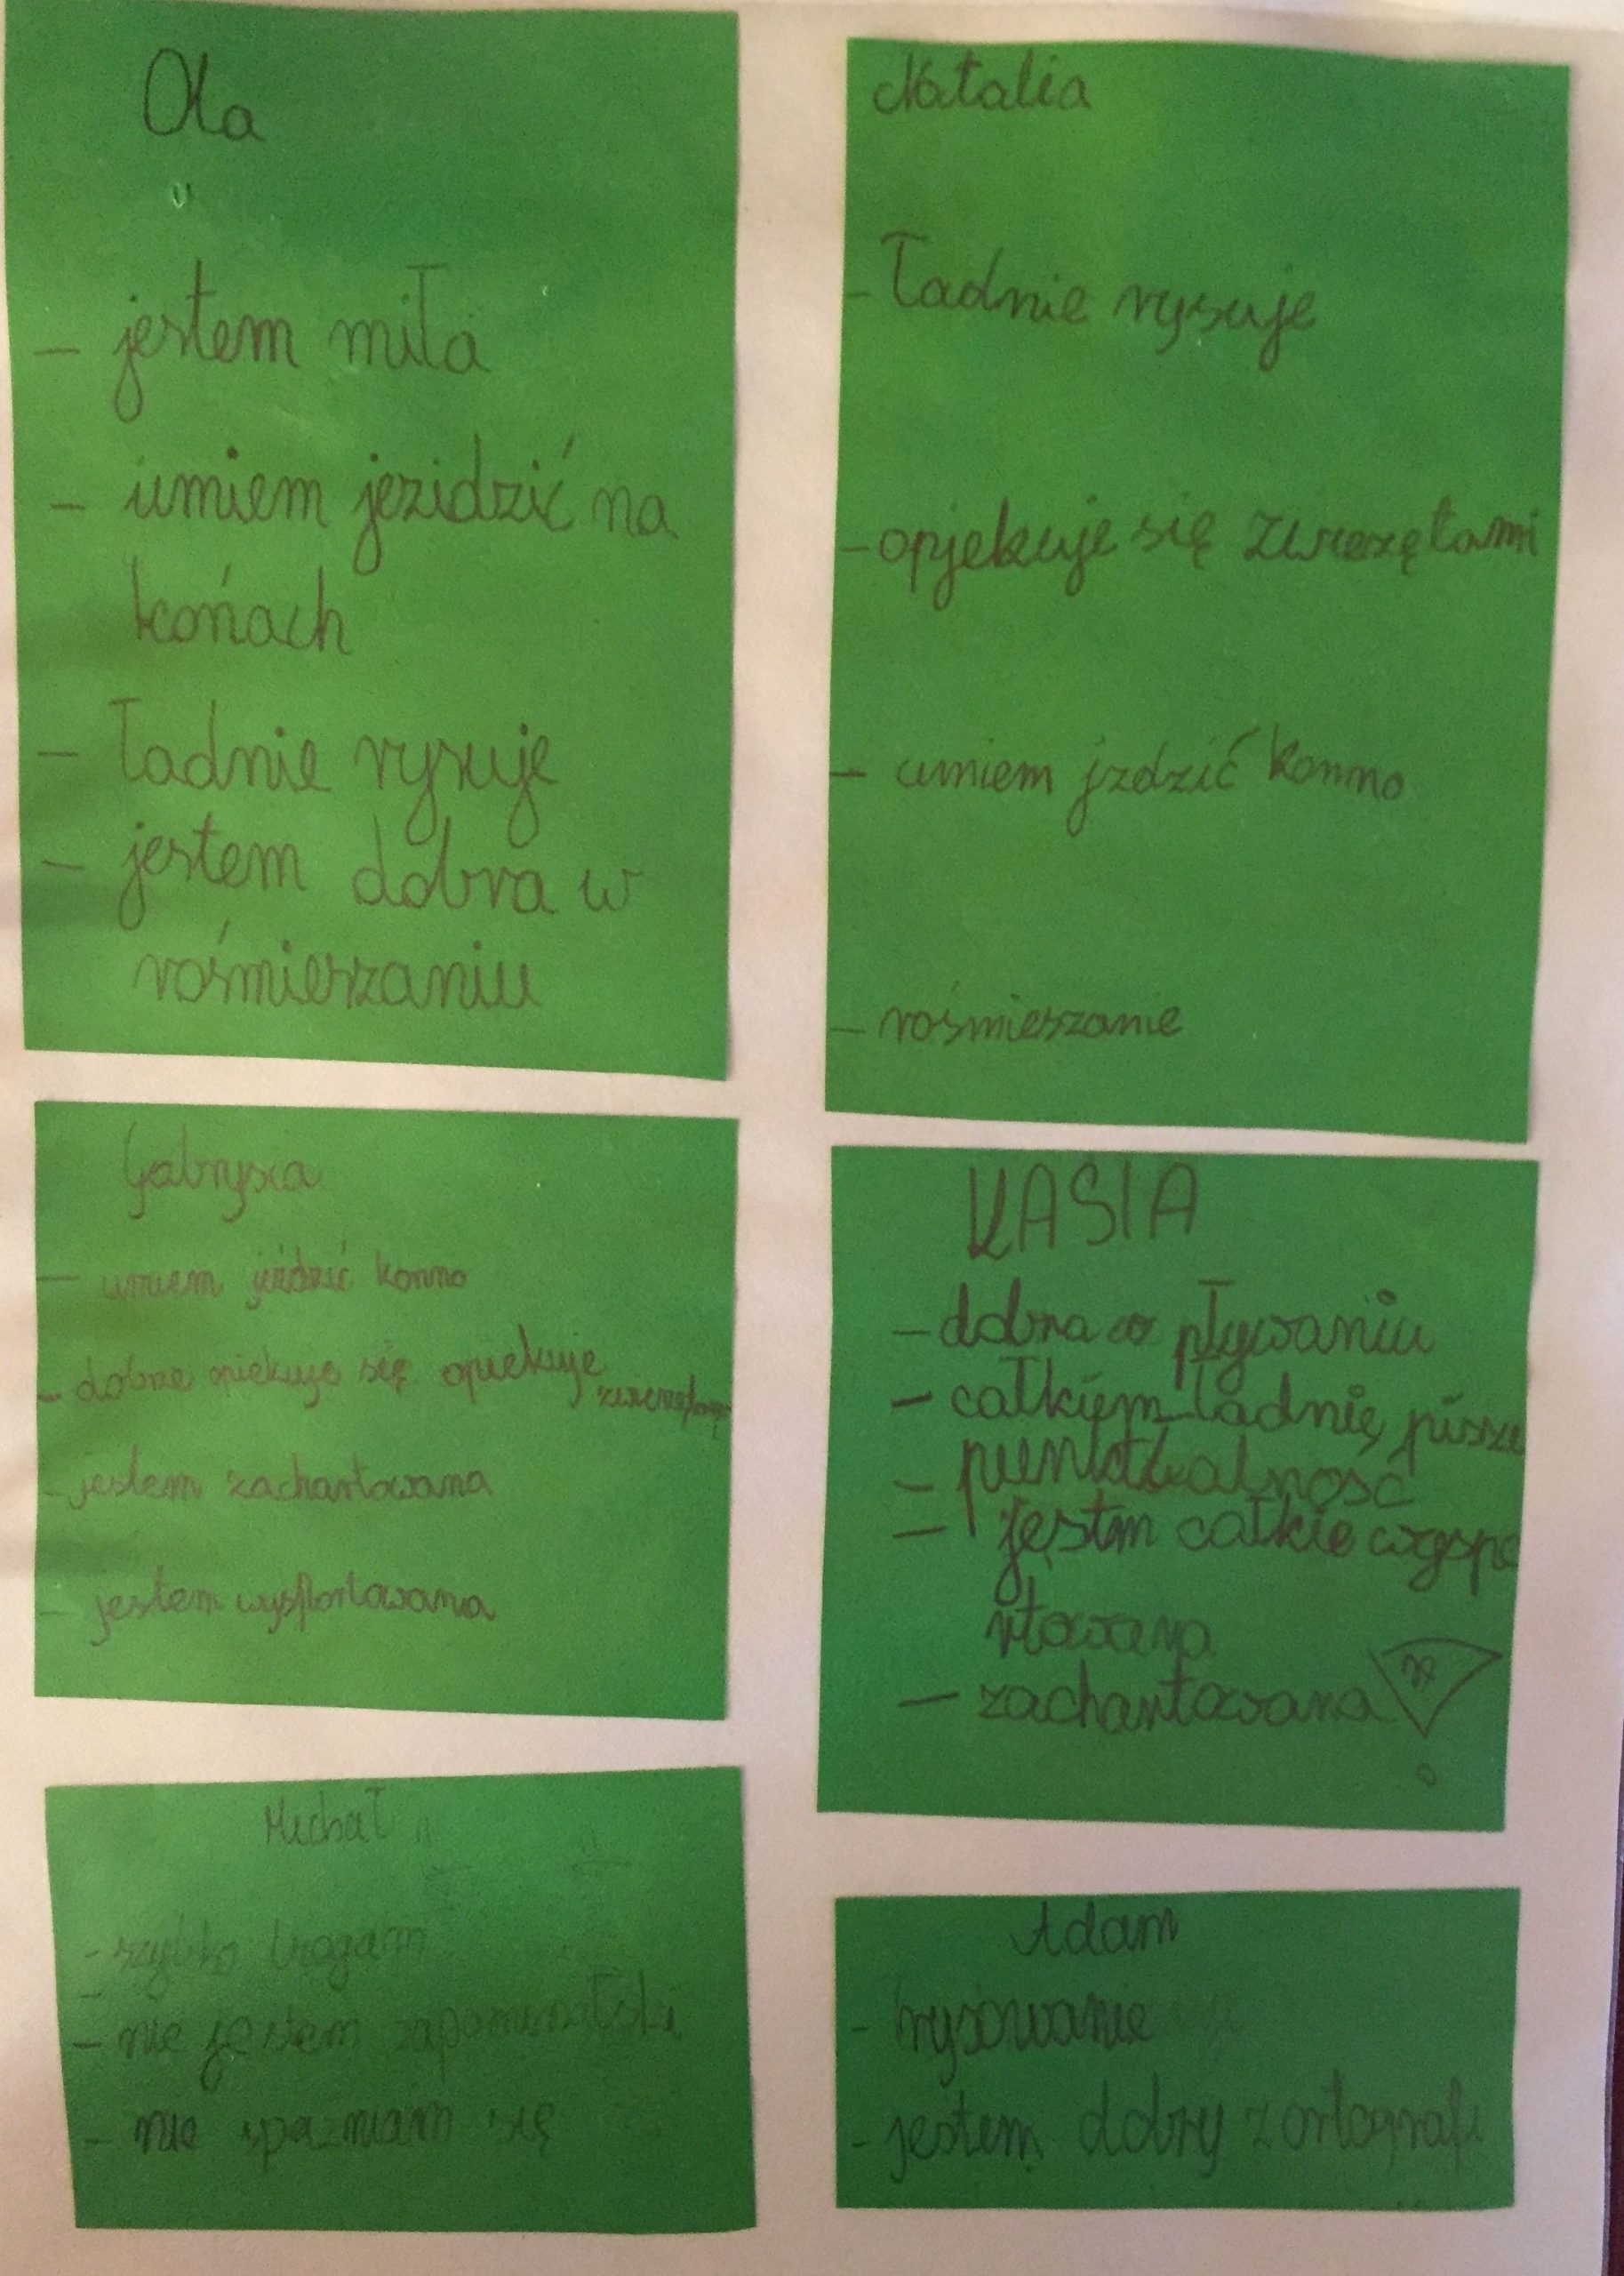 Ola
- jestem miła
- umiem jezidzić na
końach
- ładnie rysuje
- jestem dobra w
rośmieszaniu
Natalia
- Ładnie rysuje
- opjekuje się zwierzętami
- umiem jzdzić konno
- rośmieszanie
Gabrysia
- umiem jeździć konno
- dobrze opiekuje się opiekuje
- jestem zachartowana
- jestem wysportowana
KASIA
- dobra w pływaniu
- całkiem ładnie pisze
- puntkualność
- jestm całkie wyspo
rtowana
- zachartowana
Michał
- szybko biegam
- nie jestem zapominalski
- nie spaźniam się
Adam
- rysowanie
- jestem dobry z ortografi